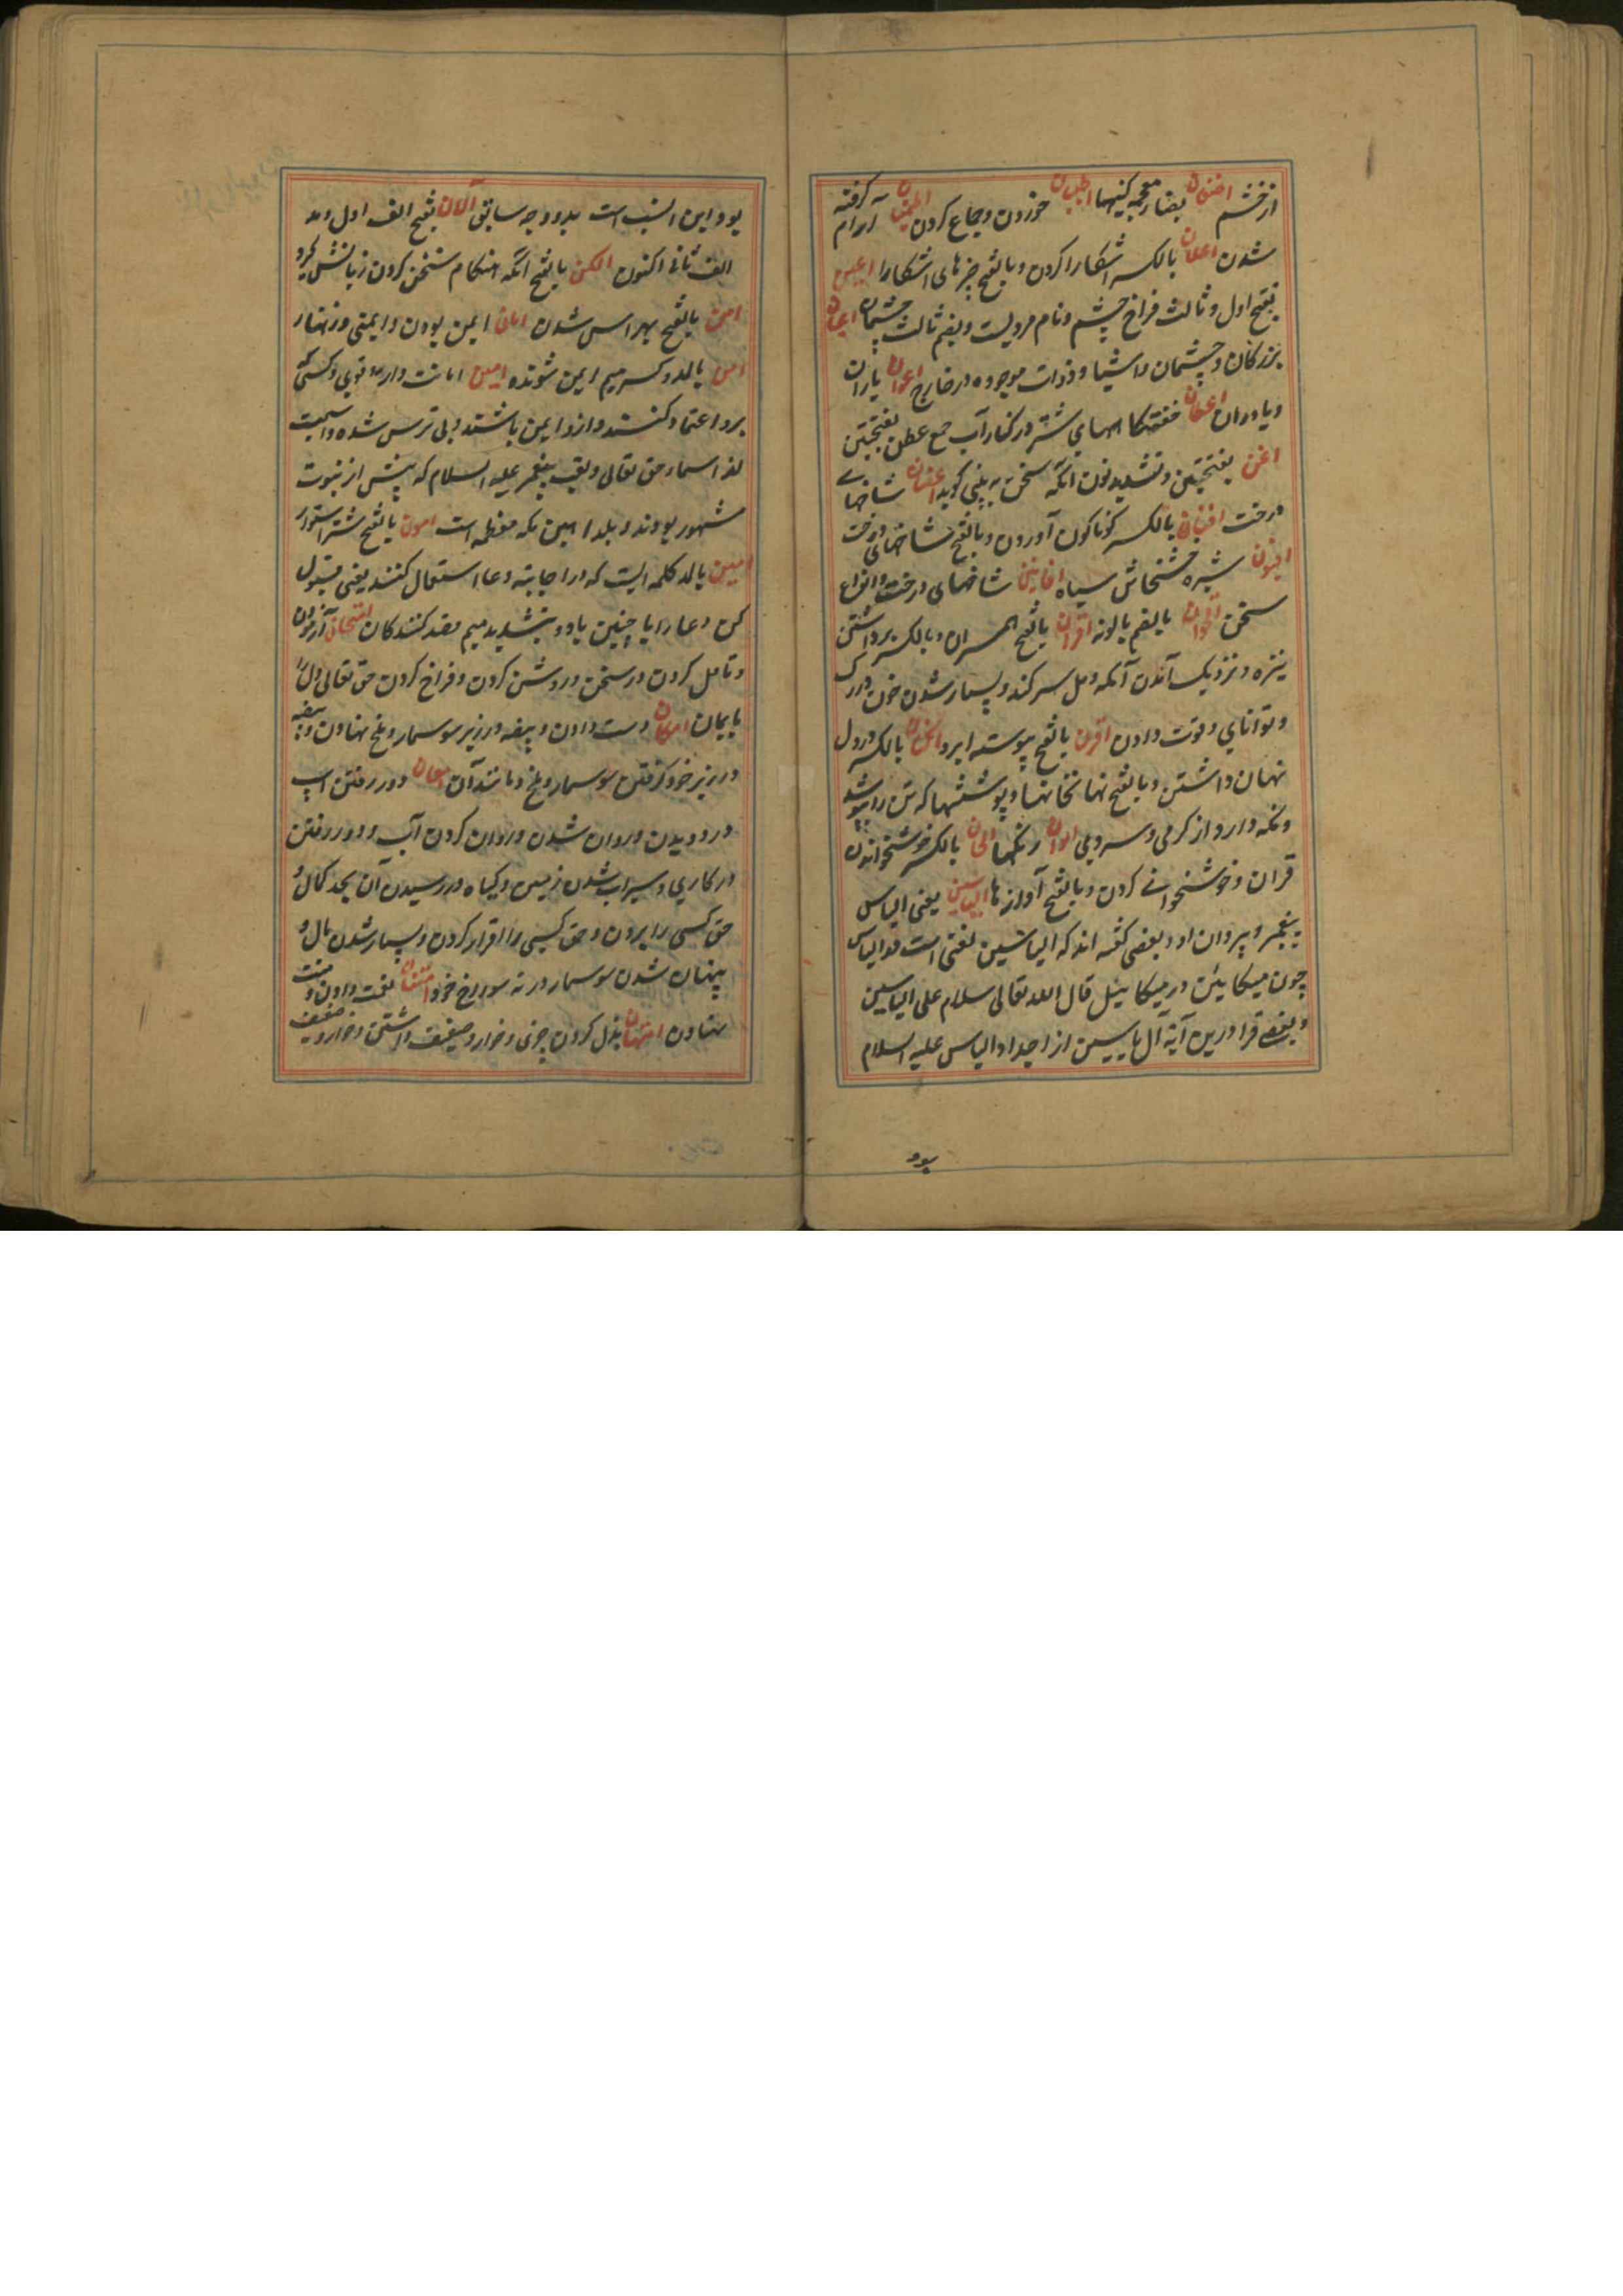 از خشم اضغان بضاد معجمه کینها اطیبان خوردن و جماع کردن اطمینان آرام گرفته
شدن اعلان بالکسر اشکارا کردن و بالفتح چیزهای اشکارا اعین
بفتح اول و ثالث فراخ چشم و نام مردیست و بضم ثالث چشمان اعیان
بزرگان و چشمان و اشیا و ذوات موجوده در خارج اعوان یاران
و یاوران اعطان خفتگاههای شتر در کنار آب جمع عطن بفتحتین
اغن بفتحتین و تشدید نون انکه سخن به بینی کوید شاخهای
درخت افنان بالکسر کوناکون آوردن و بالفتح شاخهای درخت
افیون شیره خشخاش سیاه افانین شاخهای درخت و انواع
سخن بالضم بابونه اقران بالفتح همسران و بالکسر برداشتن
نیزه و نزدیک آمدن آنکه دمل سر کند و بسیار شدن خون در رک
و توانای و قوت دادن اقرن بالفتح پیوسته ابرو اکنان بالکسر در دل
نهان داشتن و بالفتح نهانخانها و پوششها که تن را بپوشد
و نکه دارد از کرمی و سردی الوان رنکها الحان بالکسر خوشخواندن
قران و خوشخوانی کردن و بالفتح آوازها الیاسین یعنی الیاس
پیغمبر و پیروان او و بعضی کفته اند که الیاسین لغتی است در الیاس
چون میکایین در میکاییل قال الله تعالی سلام علی الیاسین
و بعضی قرا درین آیة آل یاسین از اجداد الیاس علیه السلام
بود
بود و این انسب است بدو وجه سابق آلان بفتح الف اول و مد
الف ثانی اکنون الکن بالفتح انکه هنکام سخن کردن زبانش کیرد
امن بالفتح بیهراس شدن امان ایمن بودن و ایمنی و زنهار
امن بالمد و کسر میم ایمن شونده امین امانت دار و قوی و کسی که
برو اعتماد کنند و ازو ایمن باشند و بی ترس شده و اسمیست
از اسماء حق تعالی و لقب پیغمبر علیه السلام که پیش از نبوت
مشهور بودند و بلد امین مکه معظمه است امون بالفتح شتر استوار
امین بالمد کلمه ایست که در اجابت دعا استعمال کنند یعنی قبول
کن دعا را یا چنین باد و بتشدید میم قصد کنندکان امتحان آزمودن
و تامل کردن در سخن و روشن کردن و فراخ کردن حق تعالی دل را
بایمان امکان دست دادن و بیضه در زیر سوسمار و ملخ نهادن و بیضه
در زیر خود کرفتن سوسمار و ملخ و مانند آن امعان دور رفتن اسپ
در دویدن و روان شدن و روان کردن آب و دور رفتن
در کاری و سیراب شدن زمین و کیاه و رسیدن آن بحد کمال و
حق کسی را بردن و حق کسی را اقرار کردن و بسیار شدن مال و
پنهان شدن سوسمار در ته سوراخ خود امتنان نعمت دادن و منت
نهادن امتهان بذل کردن چیزی و خوار و ضعیف داشتن و خوار و ضعیف